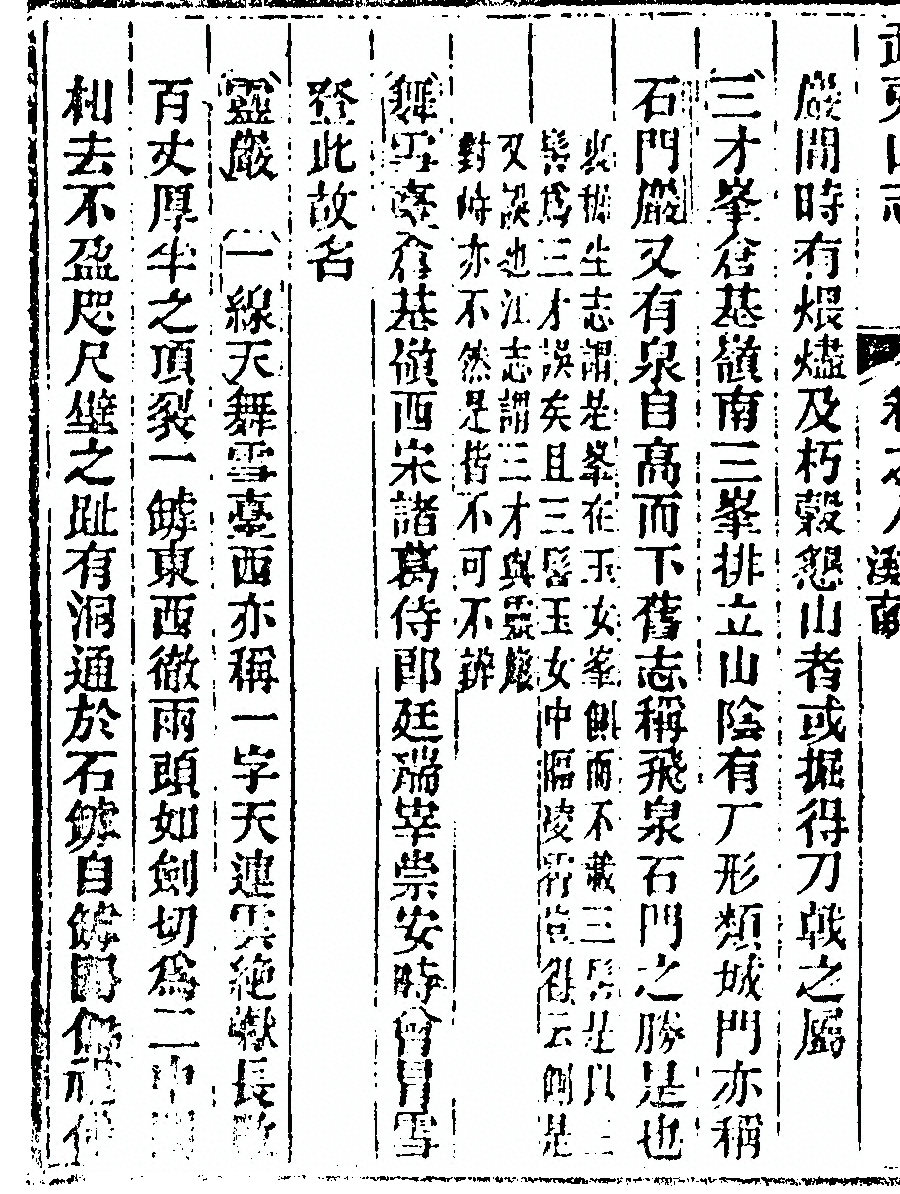 武夷山志 卷之八 溪南
巖間時有煨燼及朽穀懇山者或掘得刀戟之屬
三才峯倉基嶺南三峯排立山陰有厂形類城門亦稱
石門巖又有泉自高而下舊志稱飛泉石門之勝是也
衷樨生志謂是峯在玉女峯側而不載三髻是以三
髻爲三才誤矣且三髻玉女中隔凌霄豈得云側是
又誤也江志謂三才與靈巖
對峙亦不然是皆不可不辨
舞雪臺倉基嶺西宋諸葛侍郎廷瑞宰崇安時曾冒雪
登此故名
靈巖 一線天舞雪臺西亦稱一字天連雲絶巘長數
百丈厚半之項裂一罅東西徹兩頭如劍切爲二中間
相去不盈咫尺壁之趾有洞通於石罅自罅